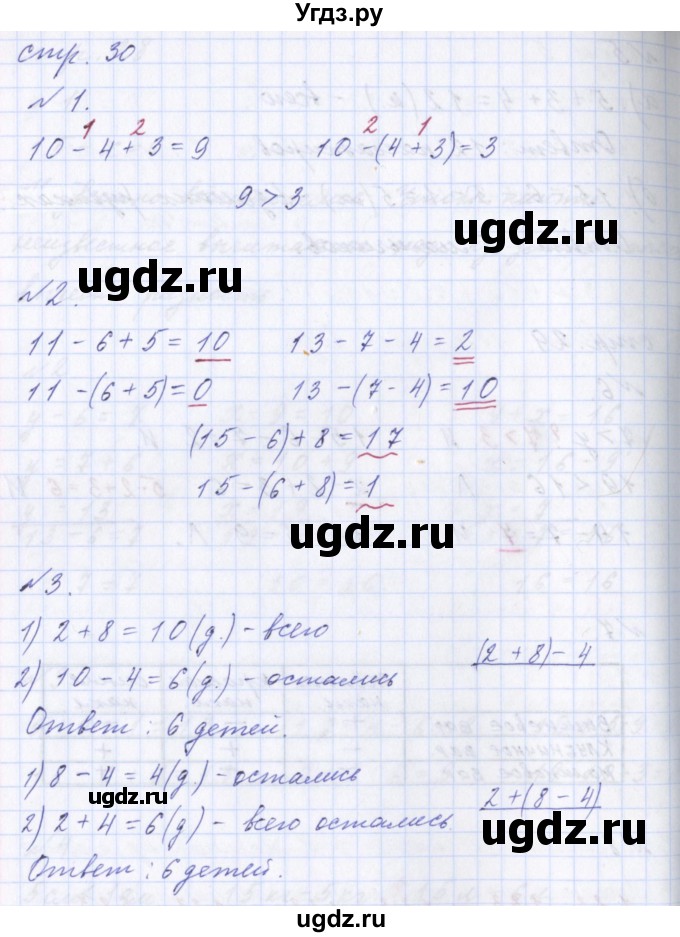 Угдз.ру
стр. 30
№ 1.
1 2 2 1
10 - 4 + 3 = 9 10 - (4 + 3) = 3
9 > 3
ugdz.ru
ugdz.ru
№ 2.
11 - 6 + 5 = 10 13 - 7 - 4 = 2
11 - (6 + 5) = 0 13 - (7 - 4) = 10
(15 - 6) + 8 = 17
15 - (6 + 8) = 1
ugdz.ru
№ 3.
1) 2 + 8 = 10 (д.) - всего
(2 + 8) - 4
2) 10 - 4 = 6 (д.) - остались
Ответ : 6 детей.
1) 8 - 4 = 4 (д.) - остались
ugdz.ru
2 + (8 - 4)
2) 2 + 4 = 6 (д) - всего остались.
ugdz.ru
Ответ : 6 детей.
ugdz.ru